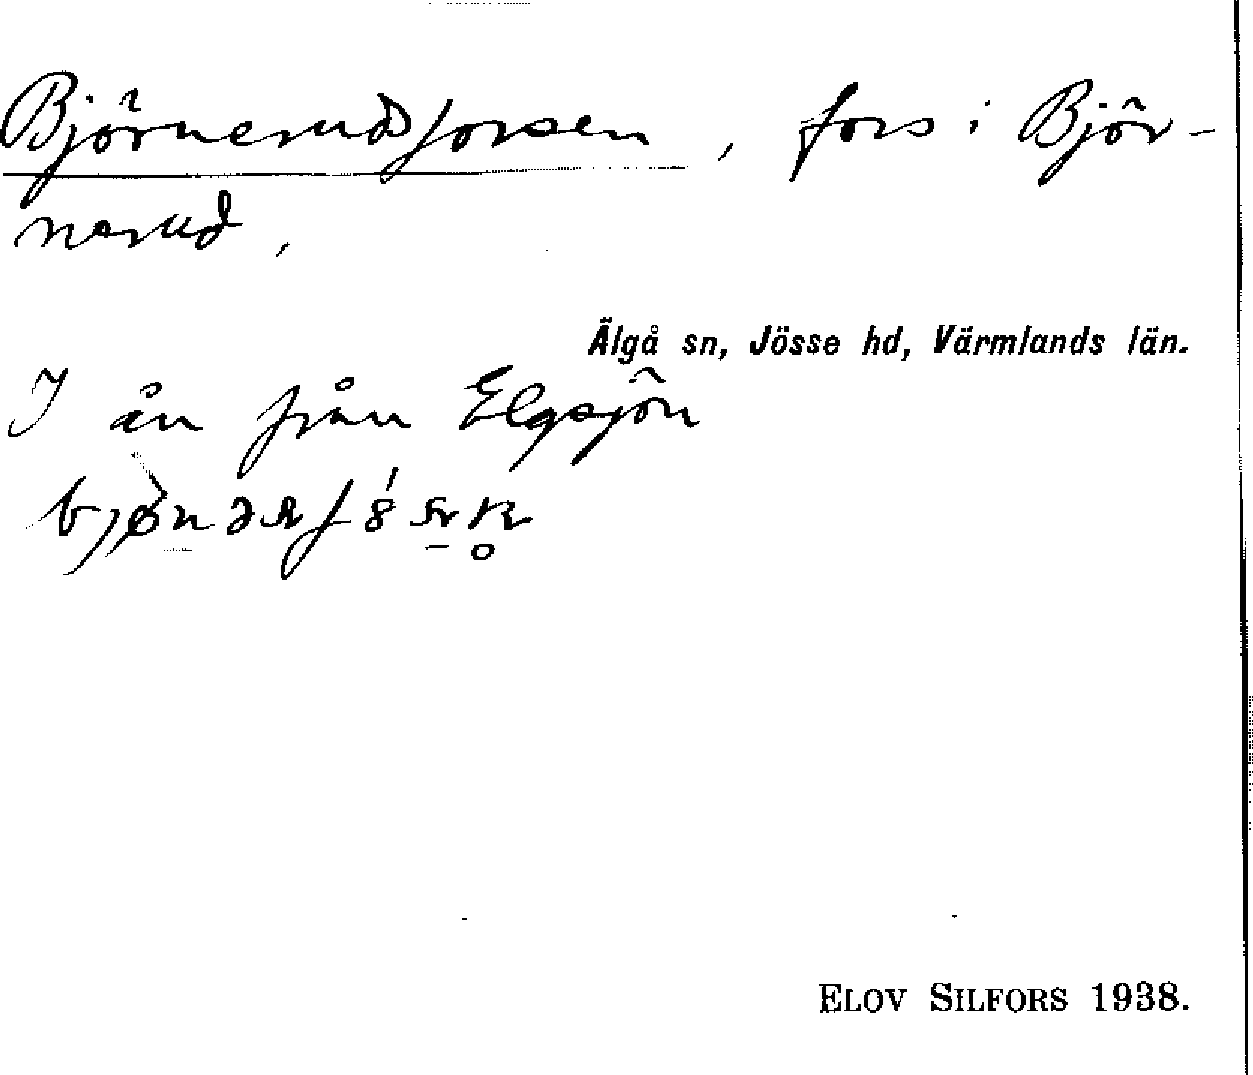 Björnerudsforsen, fors i Björ-
nerud,
Älgå sn, Jösse hd, Värmlands län.
I ån från Elgsjön
ELOV SILFORS 1938.